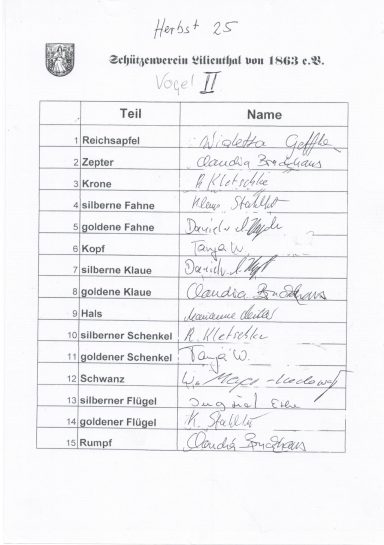 Herbst 25
Schützenverein Lilienthal von 1863 e.V.
Vogel II
Teil Name
1 Reichsapfel Wioletta
2 Zepter Claudia Brockhaus
3 Krone R Kletschke
4 silberne Fahne Klaus
5 goldene Fahne Daniel
6 Kopf Tanja W.
7 silberne Klaue Daniel
8 goldene Klaue Claudia Brockhaus
9 Hals Marianne
10 silberner Schenkel R. Kletschke
11 goldener Schenkel Tanja W.
12 Schwanz
13 silberner Flügel
14 goldener Flügel K.
15 Rumpf Claudia Brockhaus